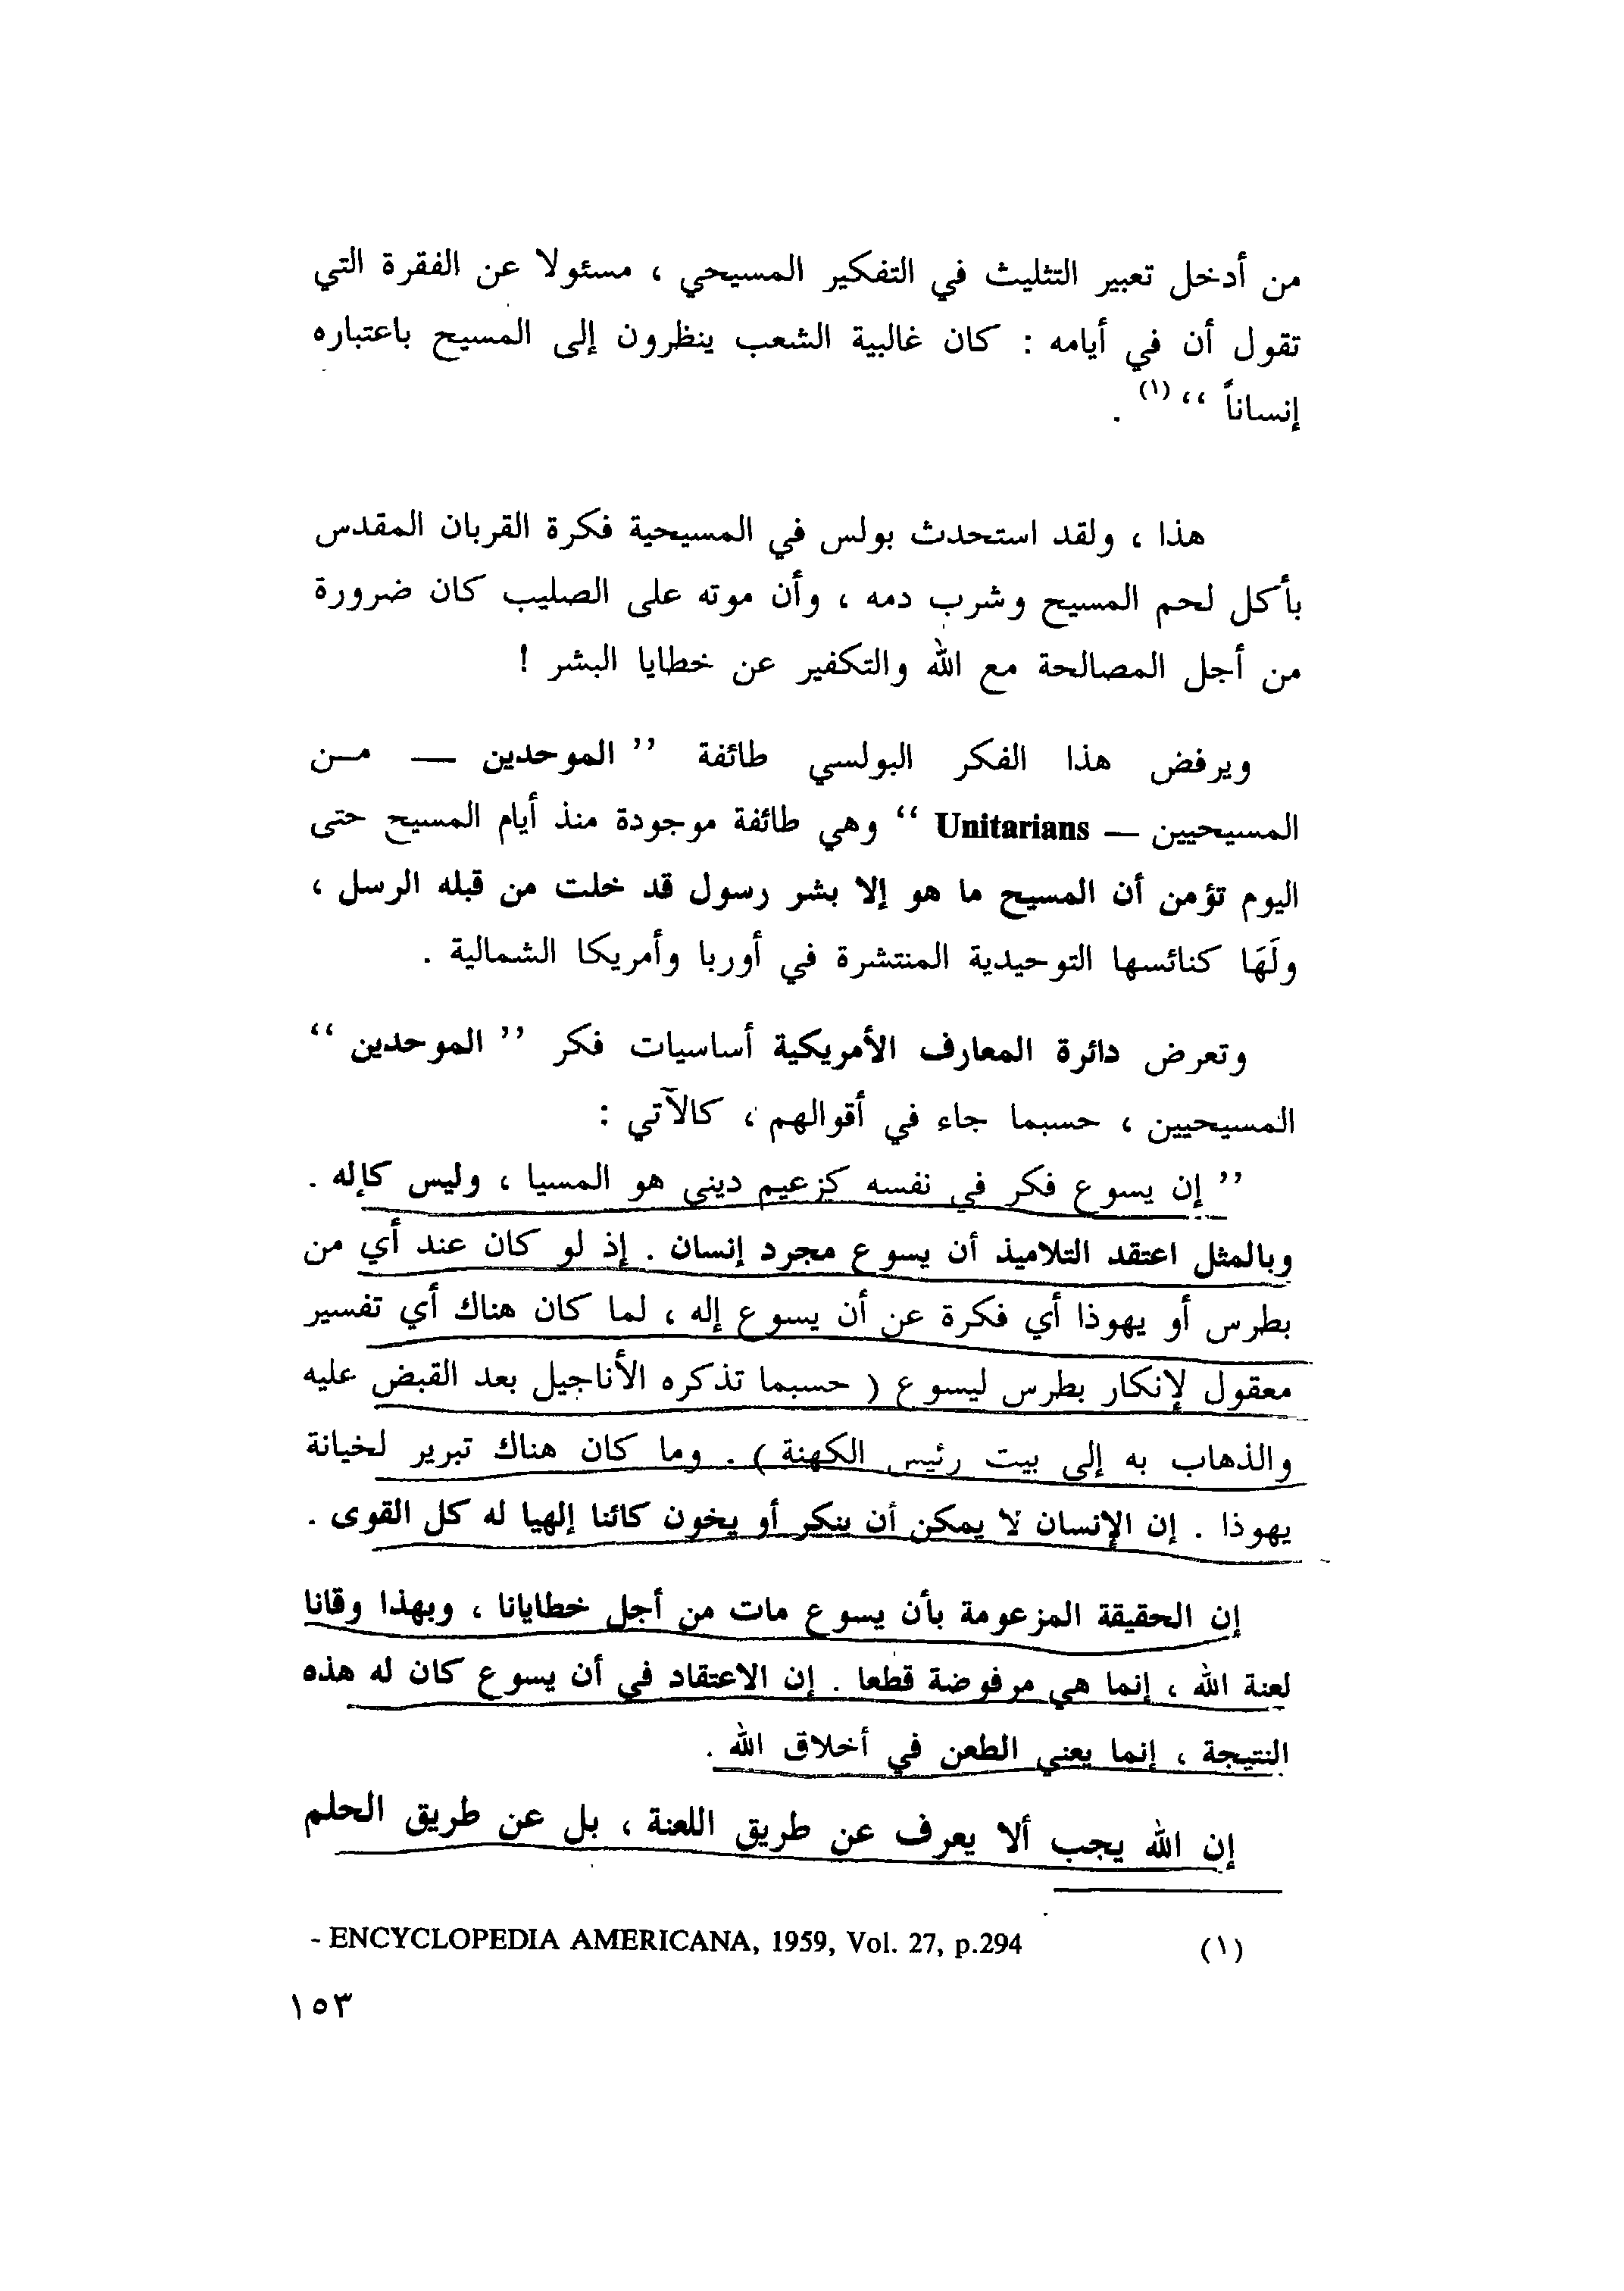 من أدخل تعبير التثليث في التفكير المسيحي ، مسئولا عن الفقرة التي
تقول أن في أيامه : كان غالبية الشعب ينظرون إلى المسيح باعتباره
إنساناً ‘‘ (١) .
هذا ، ولقد استحدث بولس في المسيحية فكرة القربان المقدس
بأكل لحم المسيح وشرب دمه ، وأن موته على الصليب كان ضرورة
من أجل المصالحة مع الله والتكفير عن خطايا البشر !
ويرفض هذا الفكر البولسي طائفة ’’ الموحدين — مـن
المسيحيين — Unitarians ‘‘ وهي طائفة موجودة منذ أيام المسيح حتى
اليوم تؤمن أن المسيح ما هو إلا بشر رسول قد خلت من قبله الرسل ،
ولَهَا كنائسها التوحيدية المنتشرة في أوربا وأمريكا الشمالية .
وتعرض دائرة المعارف الأمريكية أساسيات فكر ’’ الموحدين ‘‘
المسيحيين ، حسبما جاء في أقوالهم ، كالآتي :
’’ إن يسوع فكر في نفسه كزعيم ديني هو المسيا ، وليس كإله .
وبالمثل اعتقد التلاميذ أن يسوع مجرد إنسان . إذ لو كان عند أي من
بطرس أو يهوذا أي فكرة عن أن يسوع إله ، لما كان هناك أي تفسير
معقول لإنكار بطرس ليسوع ( حسبما تذكره الأناجيل بعد القبض عليه
والذهاب به إلى بيت رئيس الكهنة ) . وما كان هناك تبرير لخيانة
يهوذا . إن الإنسان لا يمكن أن ينكر أو يخون كائنا إلهيا له كل القوى .
إن الحقيقة المزعومة بأن يسوع مات من أجل خطايانا ، وبهذا وقانا
لعنة الله ، إنما هي مرفوضة قطعا . إن الاعتقاد في أن يسوع كان له هذه
النتيجة ، إنما يعني الطعن في أخلاق الله .
إن الله يجب ألا يعرف عن طريق اللعنة ، بل عن طريق الحلم
(١) - ENCYCLOPEDIA AMERICANA, 1959, Vol. 27, p.294
١٥٣